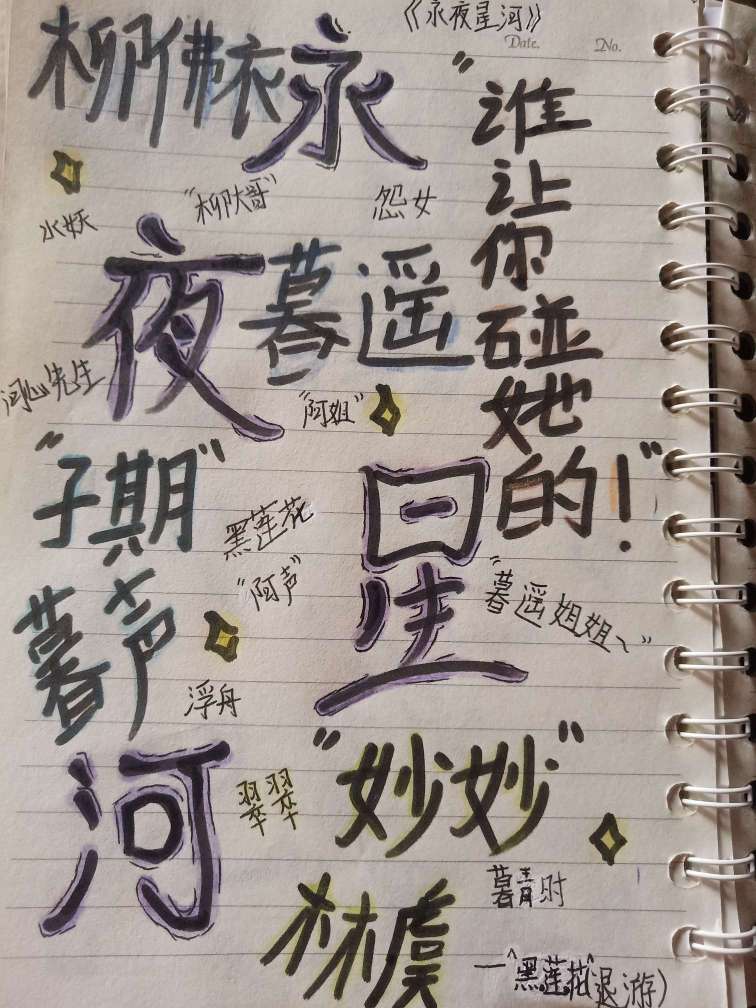 《永夜星河》
Date.
No.
柳佛衣
永
"谁让你碰她的!"
水妖
"柳大哥"
怨女
夜
暮遥
河心先生
"阿姐"
"子期"
黑莲花
"阿声"
星
"暮遥姐姐~"
暮声
浮舟
河
翠翠
"妙妙"
暮青时
林虞
一^黑莲花^退游)